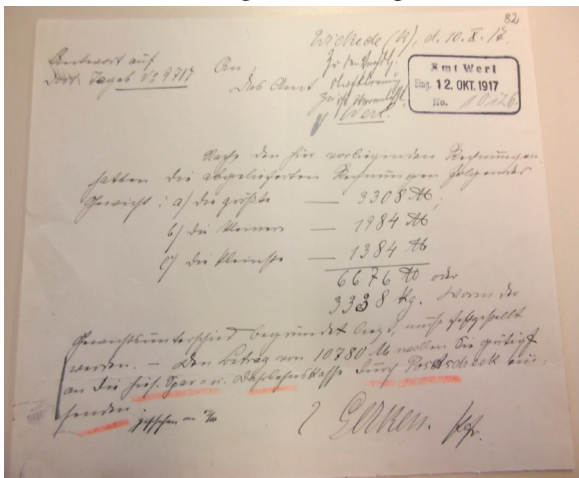 82
Wickede (R), d. 10. X. 17.
Antwort auf
Dort. Tageb. No 9717
An
Das Amt
Werl
Amt Werl
Eing. 12. OKT. 1917
No. 10126
Nach den hier vorliegenden Rechnungen
hatten die abgelieferten folgendes
Gewicht: a) die größte — 3308 ℔,
b) die kleinere — 1984 ℔
c) die kleinste — 1384 ℔
6676 ℔ oder
3338 kg. Worin der
Gewichtsunterschied begründet liegt, muß festgestellt
werden. — Den Betrag von 10780 M wollen Sie gütigst
an die hies. Spar- u. Darlehnskasse durch Postscheck ein-
senden.
Gerken. Pfr.